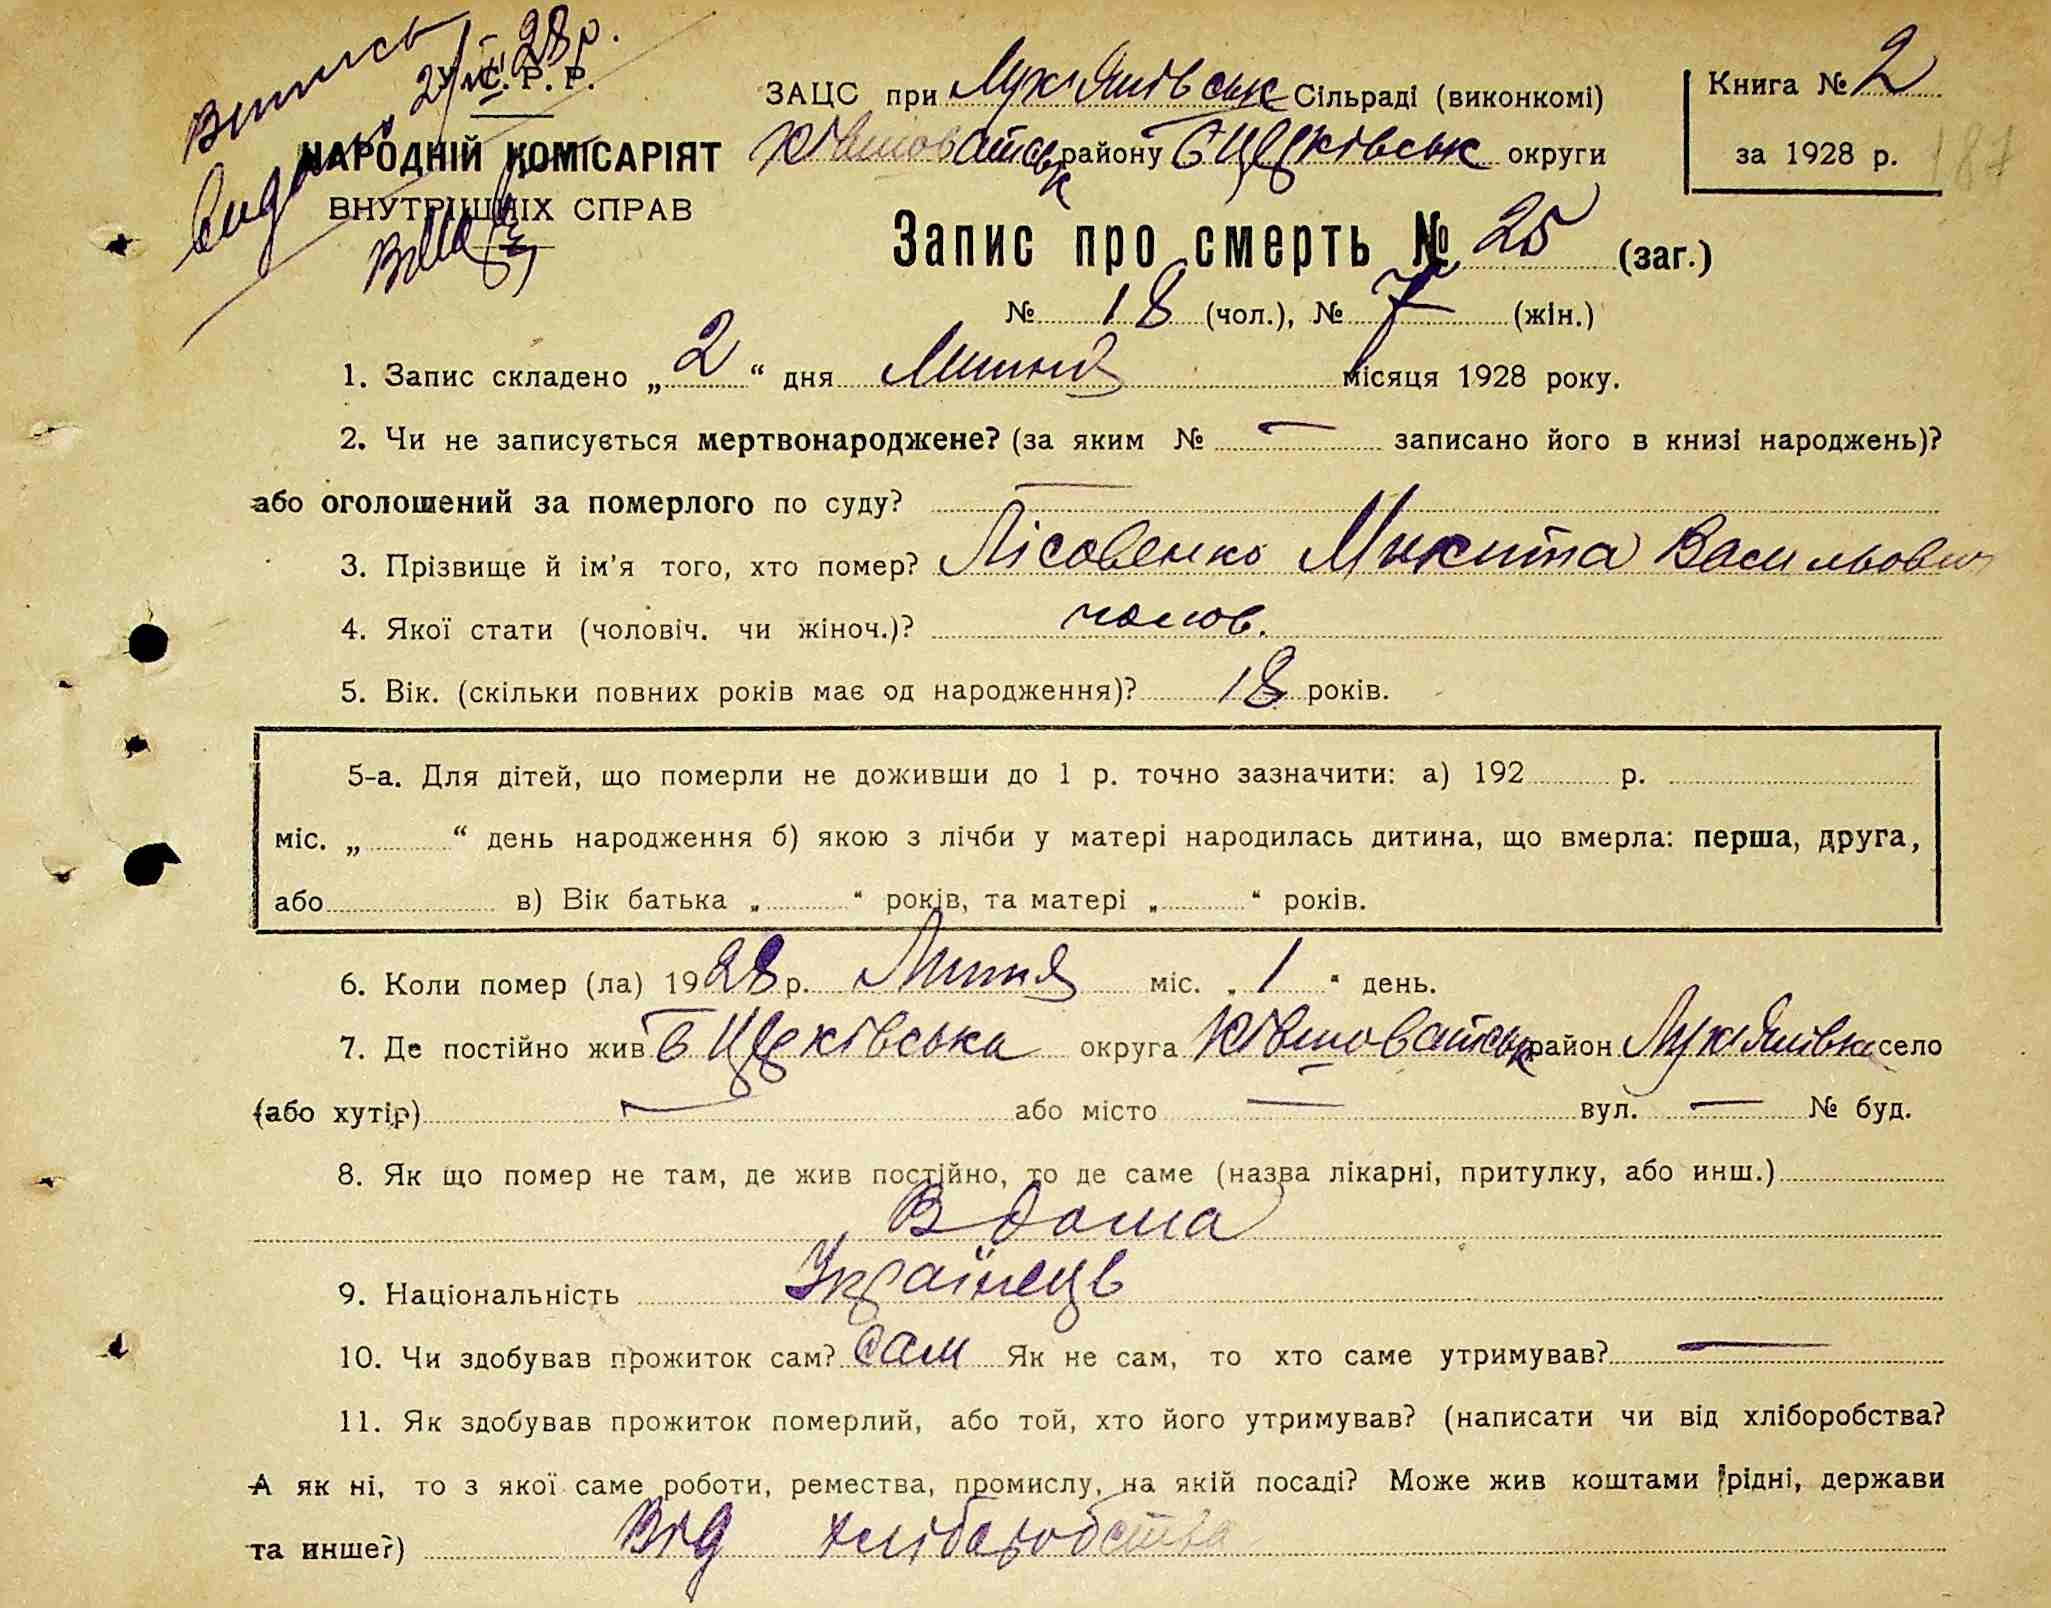 Випись
видано 2/VII 28 р.
У. С. Р. Р.
НАРОДНІЙ КОМІСАРІЯТ
ВНУТРІШНІХ СПРАВ
ЗАЦС при Лук'янівськ Сільраді (виконкомі)
Ківшоватськ району Б Церківськ округи
Книга № 2
за 1928 р. 187
Запис про смерть № 25 (заг.)
№ 18 (чол.), № 7 (жін.)
1. Запис складено „ 2 “ дня Липня місяця 1928 року.
2. Чи не записується мертвонароджене? (за яким № — записано його в книзі народжень)?
або оголошений за померлого по суду? —
3. Прізвище й ім'я того, хто помер? Лісовенко Микита Васильович
4. Якої стати (чоловіч. чи жіноч.)? чолов.
5. Вік. (скільки повних років має од народження)? 18 років.
5-а. Для дітей, що померли не доживши до 1 р. точно зазначити: а) 192 р.
міс. „ “ день народження б) якою з лічби у матері народилась дитина, що вмерла: перша, друга,
або в) Вік батька „ “ років, та матері „ “ років.
6. Коли помер (ла) 1928 р. Липня міс. „ 1 “ день.
7. Де постійно жив Б Церківська округа Ківшоватськ район Лук'янівка село
(або хутір) — або місто — вул. — № буд.
8. Як що помер не там, де жив постійно, то де саме (назва лікарні, притулку, або инш.)
В дома
9. Національність Українець
10. Чи здобував прожиток сам? сам Як не сам, то хто саме утримував? —
11. Як здобував прожиток померлий, або той, хто його утримував? (написати чи від хліборобства?
А як ні, то з якої саме роботи, ремества, промислу, на якій посаді? Може жив коштами рідні, держави
та инше?) Від хліборобства